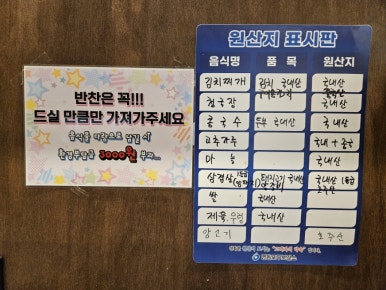 반찬은 꼭!!!
드실 만큼만 가져가주세요
음식물 대량으로 남길 시
환경부담금 3000원 부과...
원산지 표시판
음식명 품목 원산지
김치찌개 김치 국내산 국내산
청국장 국내산
콩국수 두부 국내산 국내산
고추가루 국내 + 중국
마늘 국내산
삼겹살 돼지고기 국내산 국내산
호주산
쌀 국내산
제육 국내산 국내산
호주산